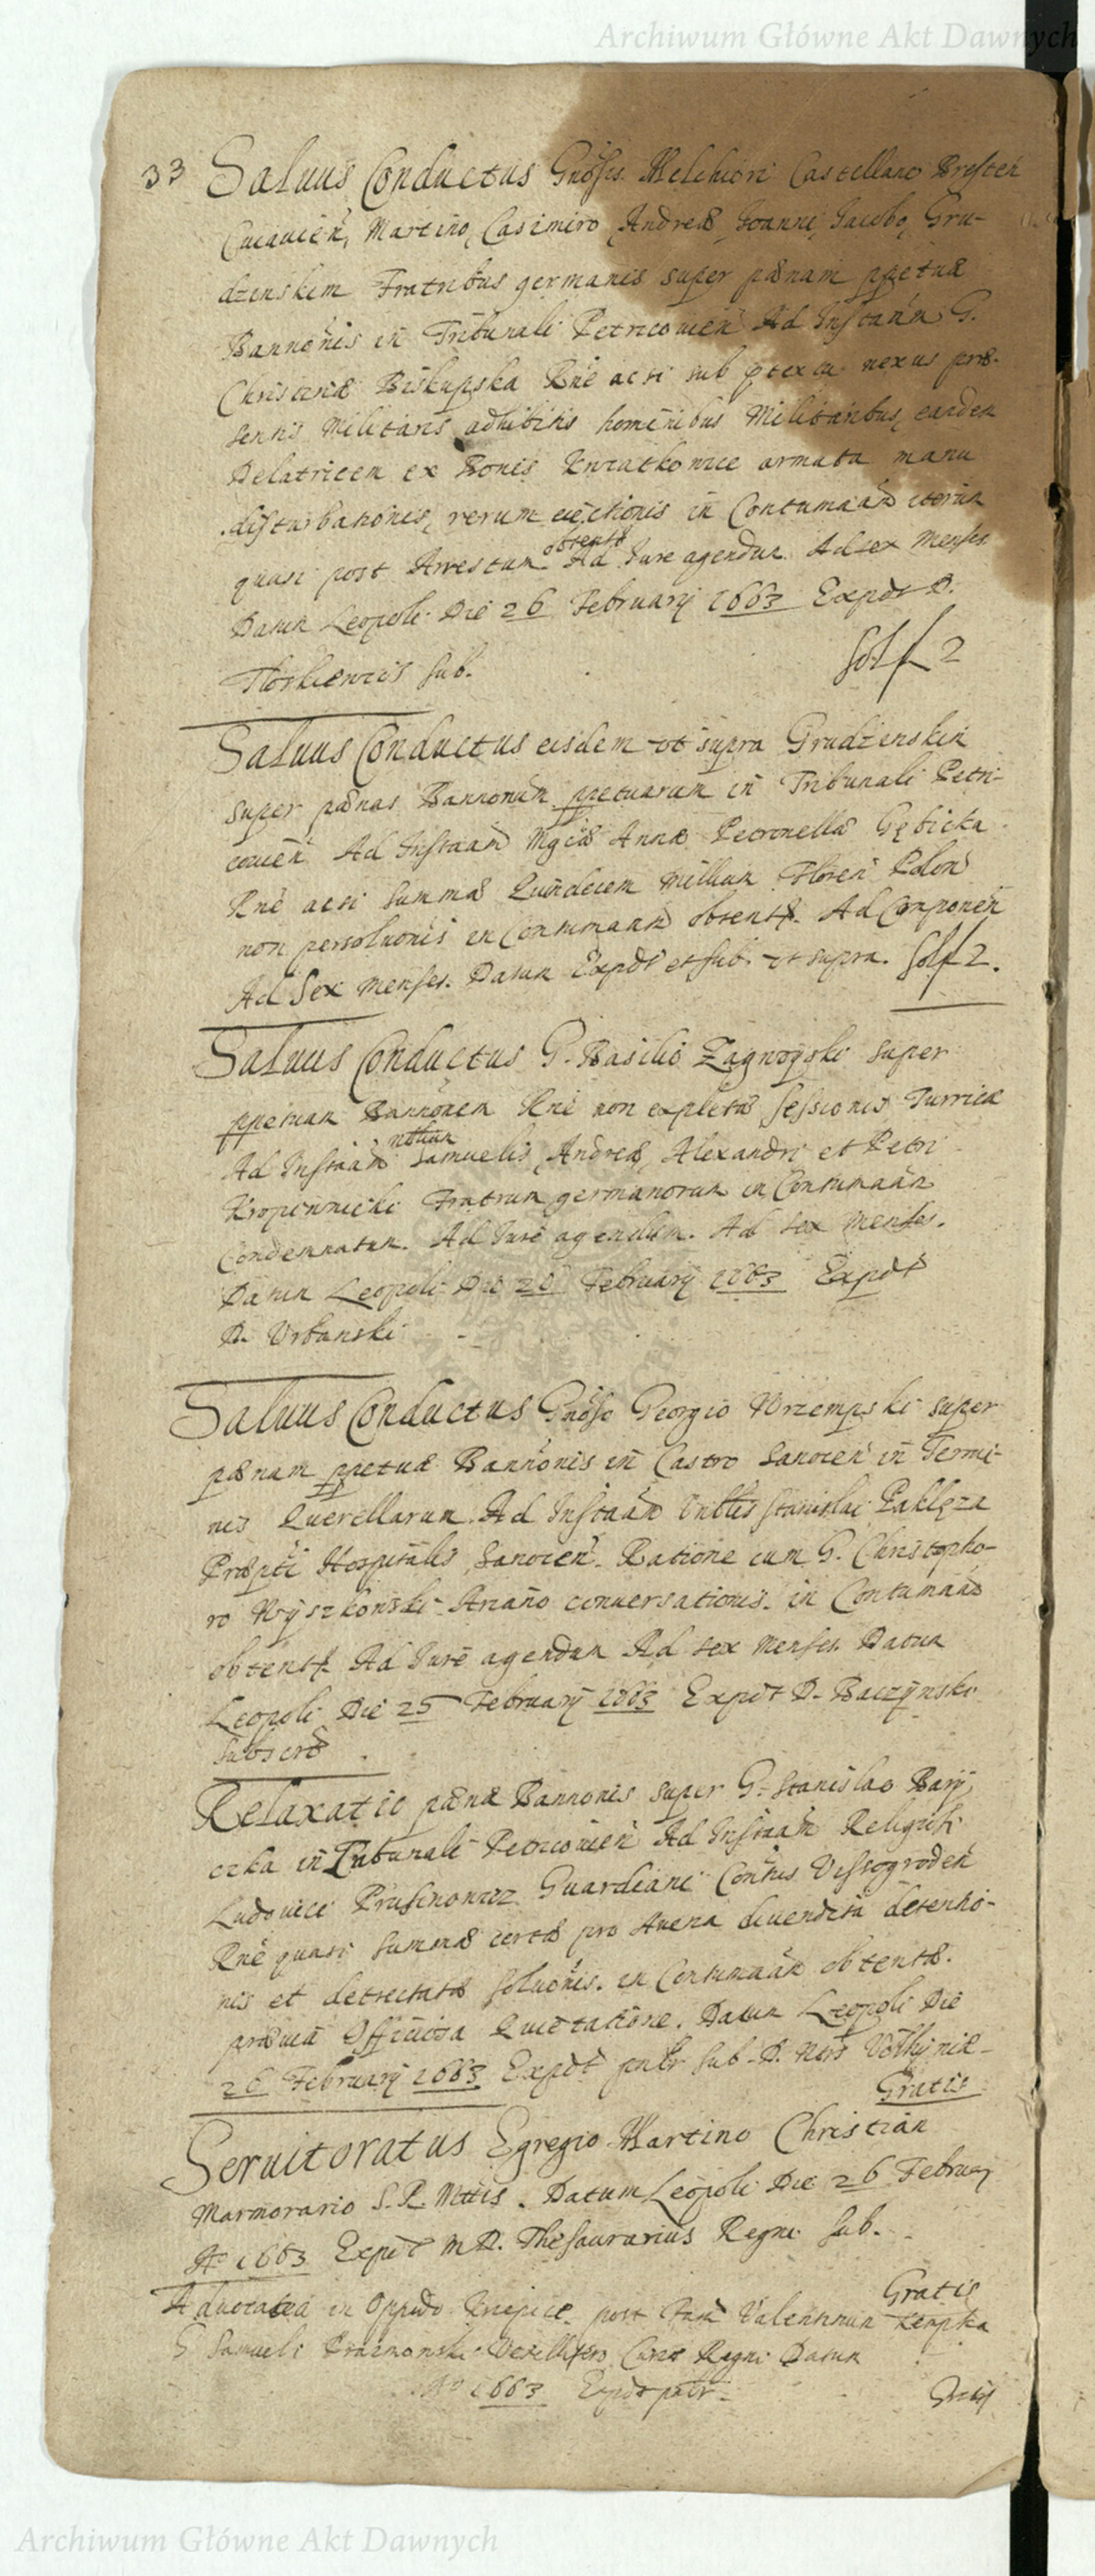 Archiwum Główne Akt Dawnych
33 Saluus Conductus Gnosis Melchiori Castellano Bresten
Cuiauien, Martino, Casimiro, Andreæ, Joanni, Jacobo, Gru-
dzenskim Fratribus germanis super pænam ppetuæ
Bannonis in Tribunali Petricouien Ad Instānn G.
Christinæ Biskupska Rne acsi sub ptextu nexus præ-
sentis Militaris adhibitis hominibus Militaribus, eanden
Delatricem ex Bonis Kwiatkowice armata manu
disturbationis, rerum eiectionis in Contumaān iterum
quasi post Arrestum obtentæ Ad Jure agendum Ad sex Menses
Datum Leopoli Die 26 Februarij 1663 Expdt D.
sub. sol f 2
Saluus Conductus eisdem ut supra Grudzenskin
super pænas Bannonum ppetuarum in Tribunali Petri-
couien Ad Instaan Mgcæ Annæ Petronellæ Gębicka
Rne acsi summæ Quindecem Millium Floren Polon
non persolutionis in Contumaam obtent. Ad Componen
Ad Sex Menses. Datum Expdt et sub. ut supra. sol f 2.
Saluus Conductus G. Basilio Zagwoyski super
ppetuam Bannonem Rne non expletæ sessionis Turricæ
Ad Instaan nblium Samuelis, Andreæ, Alexandri et Petri
Kropiwnicki Fratrum germanorum in Contumaān
Condemnatum. Ad Jure agendum. Ad sex Menses.
Datum Leopoli Die 26 Februarij 1663 Expdt
D. Urbanski
Saluus Conductus Gnoso Georgio Wrzempski super
pænam ppetuæ Bannonis in Castro Sanocen in Termi-
nis Querellarum. Ad Instaan Stanislai Paklęza
Præpti Hospitalis Sanocen. Ratione cum G. Christopho-
ro Wyszkowski Ariano conuersationis. in Contumaān
obtent. Ad Jure agendum Ad sex Menses Datum
Leopoli Die 25 Februarij 1663 Expdt D. Baczynski
subscrb
Relaxatio pænæ Bannonis super G. Stanislao Bary
czka in Tribunali Petricouien Ad Instaan Religiosi
Ludouici Prusinowicz Guardiani Contus Vissogroden
Rne quasi summæ certæ pro Auena diuendita detentio-
nis et detrectatæ solutionis. in Contumaān obtentæ.
præuia Officiosa Quietatione. Datum Leopoli Die
26 Februarij 1663 Expdt sub. D.
Gratis
Seruitoratus Egregio Martino Christian
Marmorario S. R. Mttis. Datum Leopoli Die 26 Februar
Ao 1663 Expdt M D. Thesaurarius Regni sub.
Gratis
Aduocatia in Oppido post Valentinum Kempka
G Samueli Vexillifero Curiæ Regni Datum
Ao 1663 Expdt
Archiwum Główne Akt Dawnych